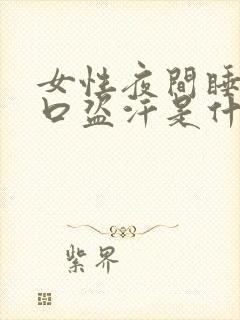 女性夜間睡
口盗汗是什
紫界